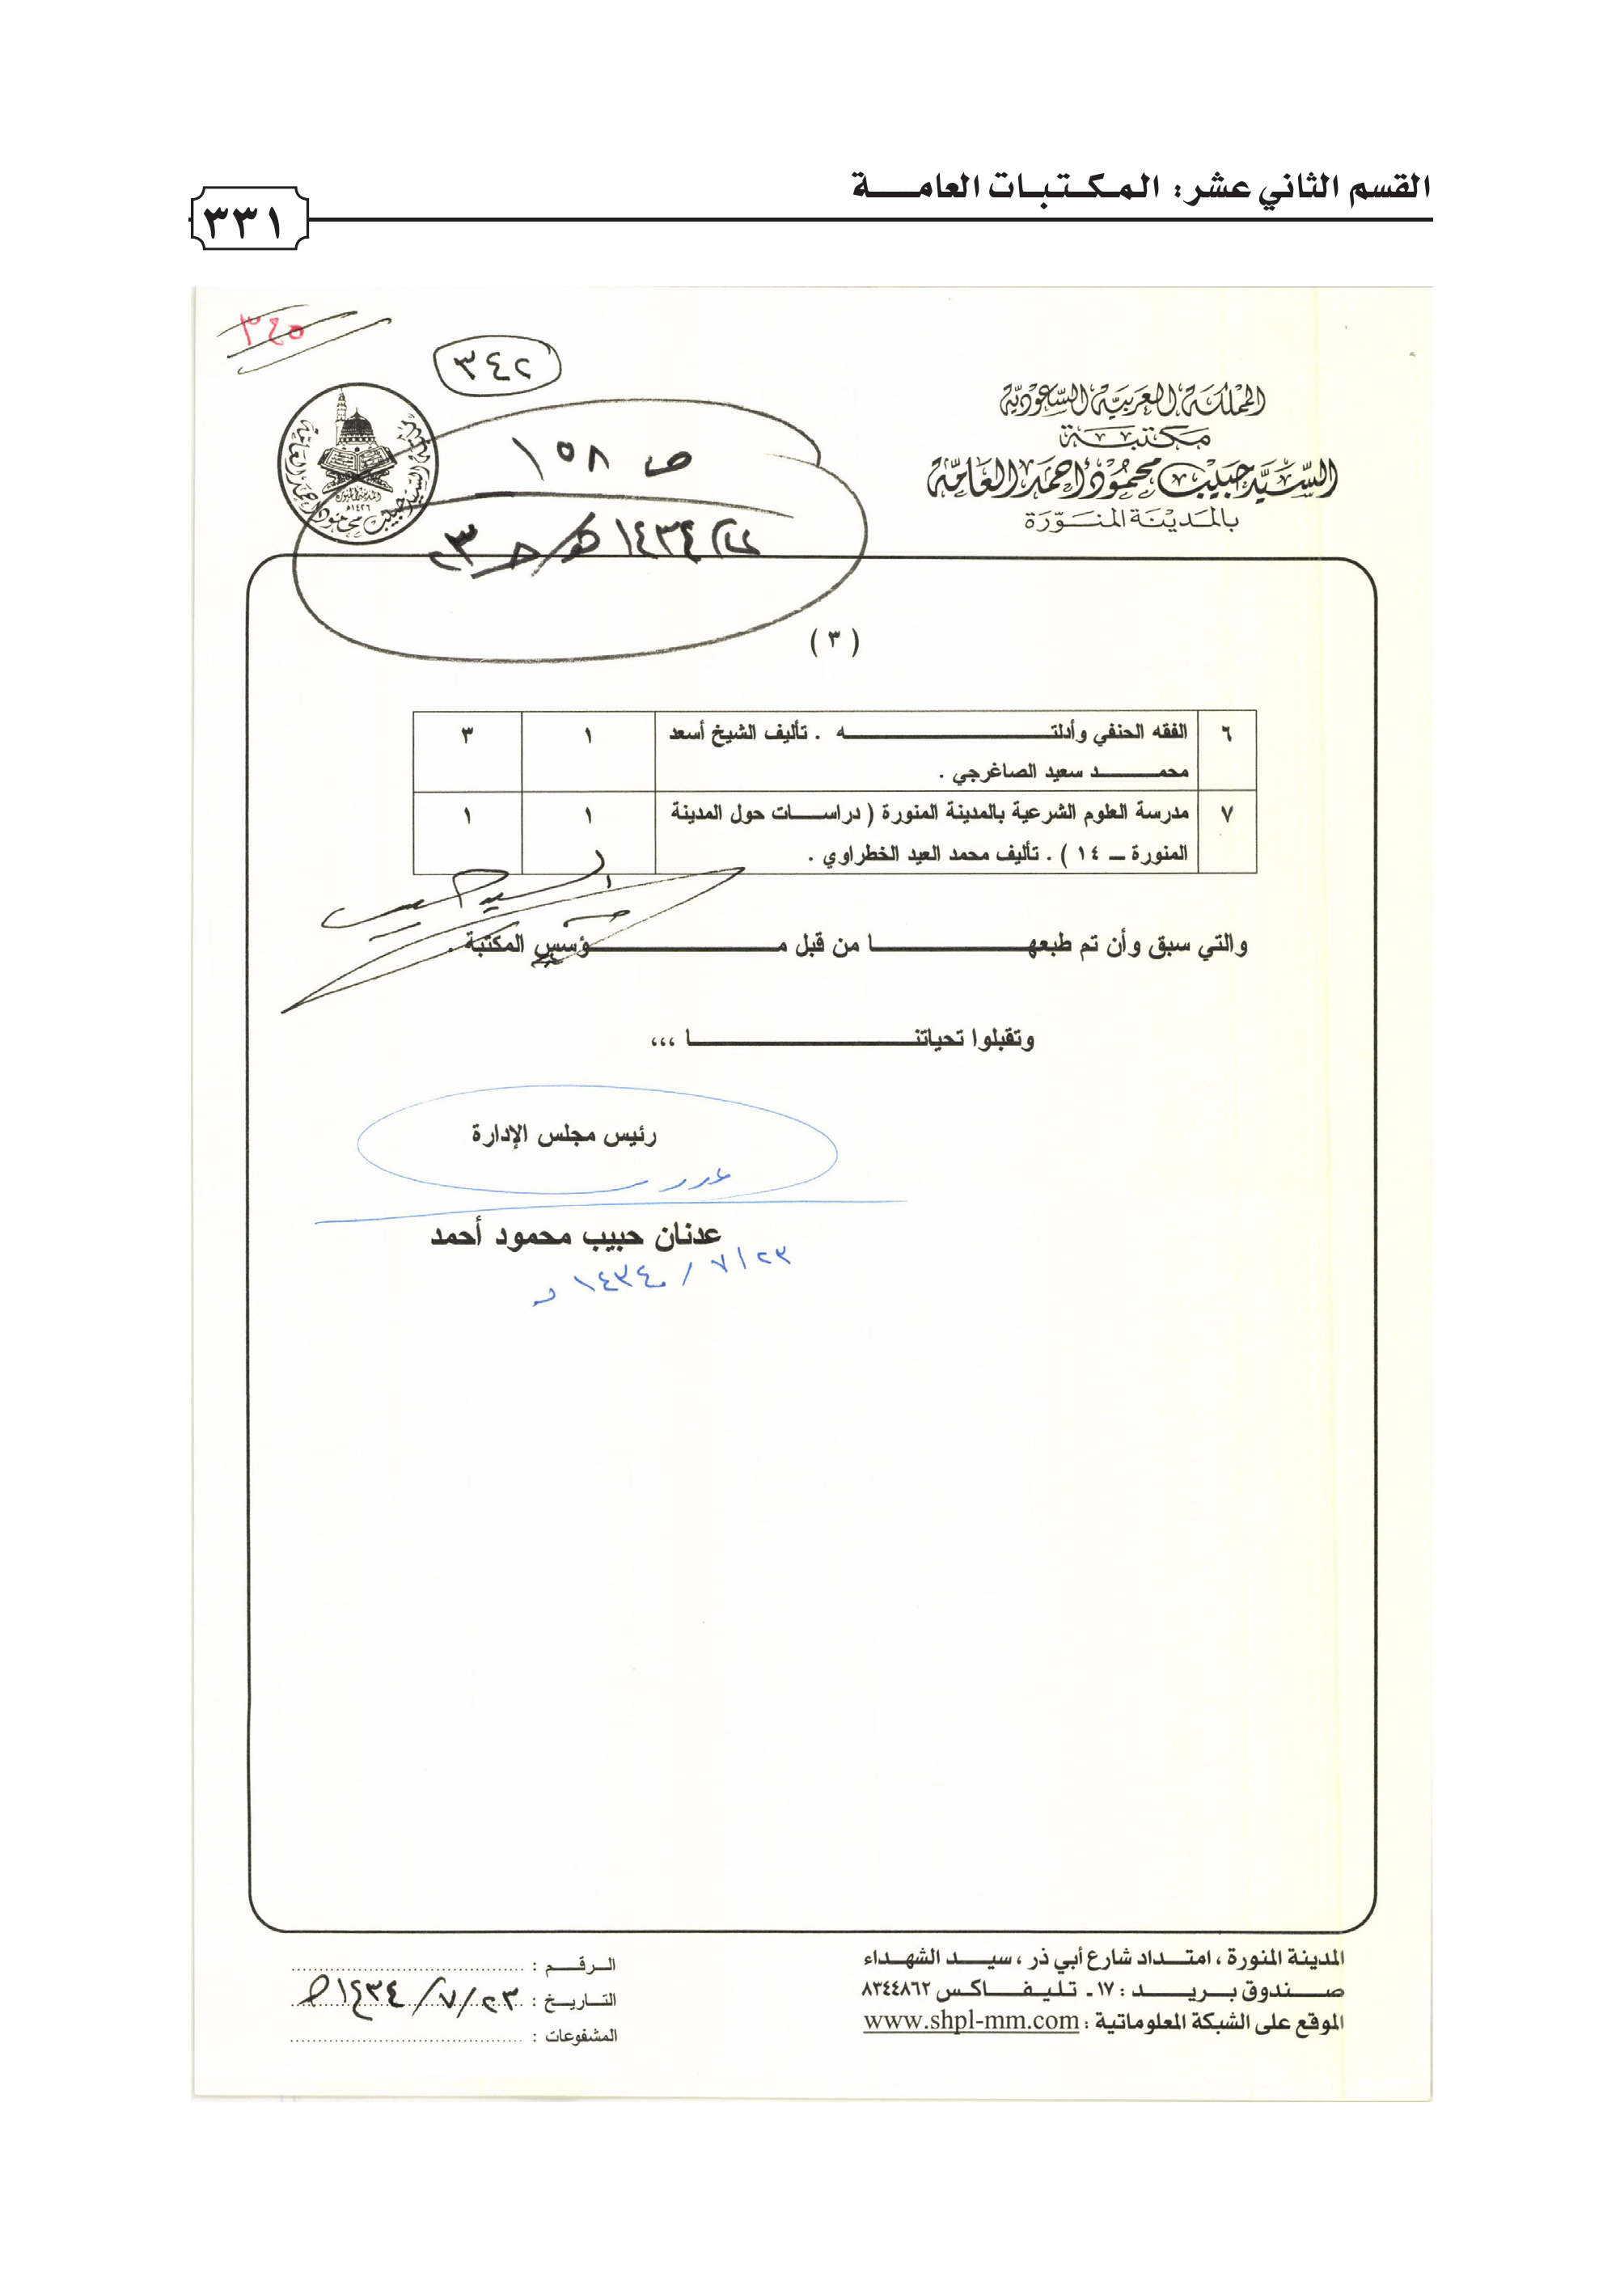 القسم الثاني عشر: المكتبات العامة
٣٣١
٣٤٥
٣٤٢
المملكة العربية السعودية
مكتبة
السيد حبيب محمود أحمد العامة
بالمدينة المنورة
ص ١٥٨
١٤٣٤هـ
(٣)
٦ الفقه الحنفي وأدلته . تأليف الشيخ أسعد ١ ٣
محمد سعيد الصاغرجي .
٧ مدرسة العلوم الشرعية بالمدينة المنورة ( دراسات حول المدينة ١ ١
المنورة – ١٤ ) . تأليف محمد العيد الخطراوي .
والتي سبق وأن تم طبعها من قبل مؤسس المكتبة .
السيد حبيب
وتقبلوا تحياتنا ،،،
رئيس مجلس الإدارة
عدنان حبيب محمود أحمد
٢٣/٧/١٤٣٤هـ
المدينة المنورة ، امتداد شارع أبي ذر ، سيد الشهداء
صندوق بريد : ١٧ ـ تليفاكس ٨٣٤٤٨٦٢
الموقع على الشبكة المعلوماتية : www.shpl-mm.com
الرقم :
التاريخ : ٢٣/٧/١٤٣٤هـ
المشفوعات :